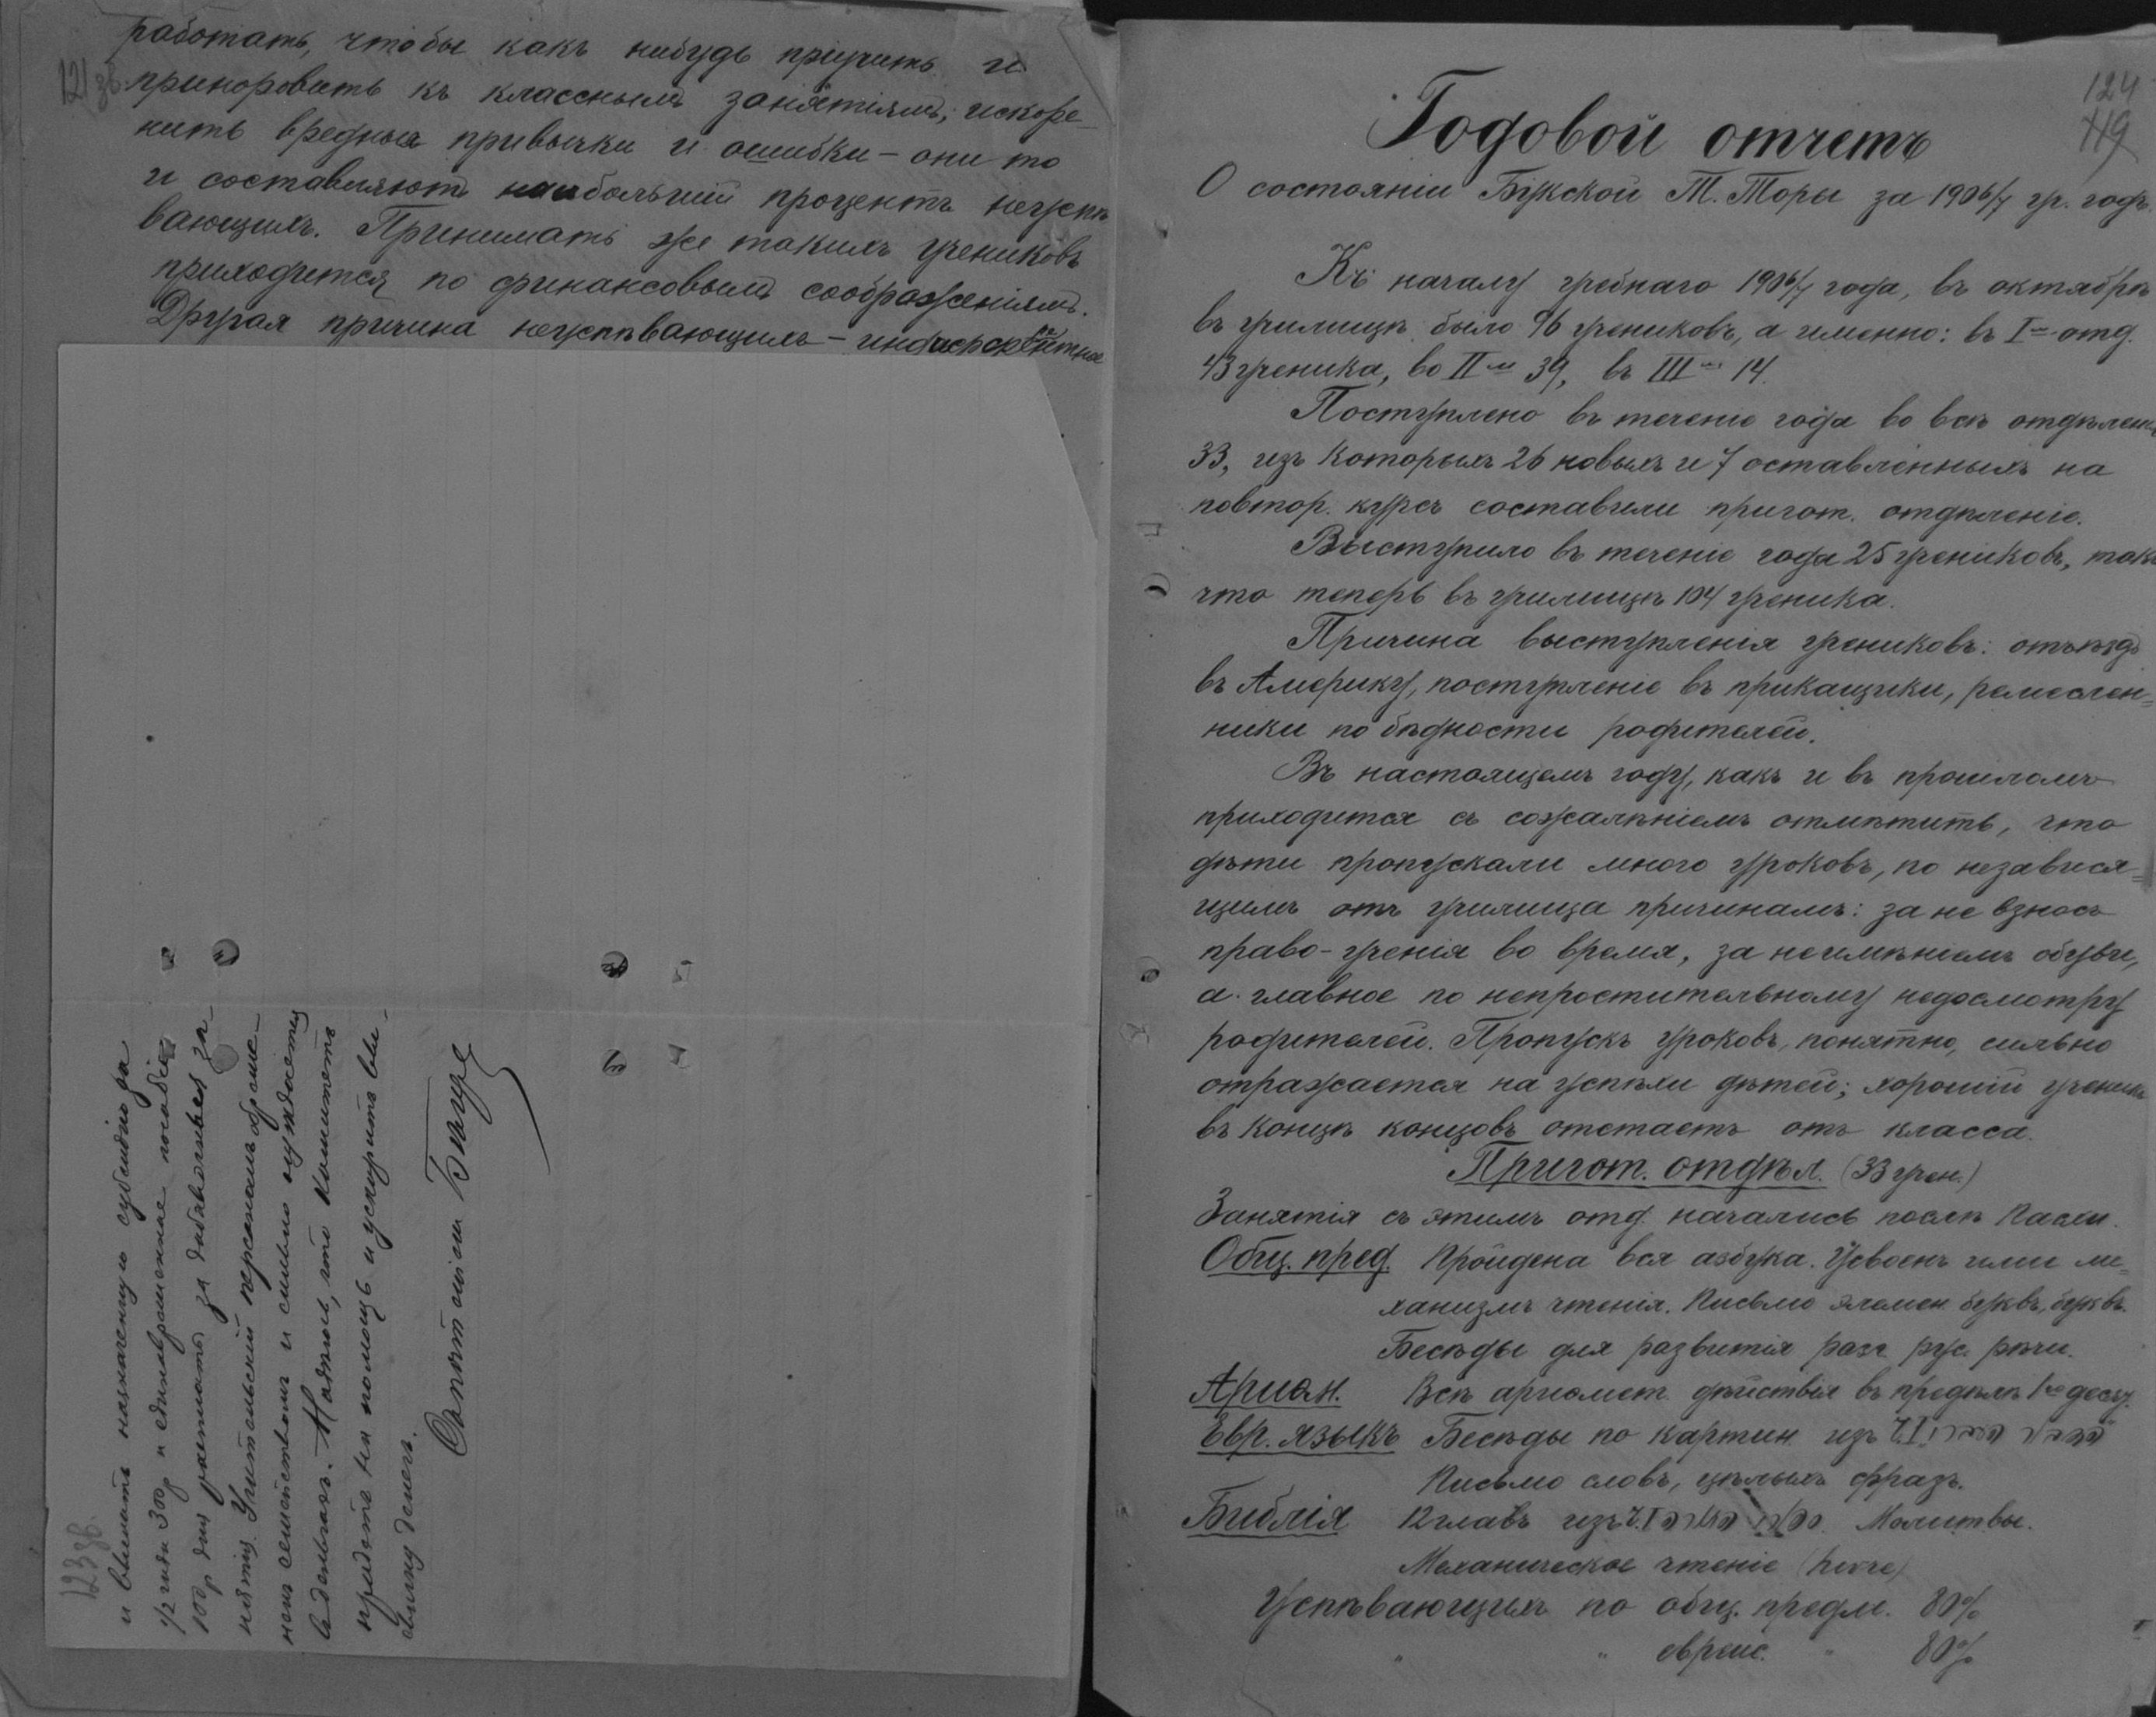 работать, чтобы какъ нибудь пріучить и
121 об.
приноровить къ класснымъ занятіямъ, искоре-
нить вредныя привычки и ошибки – они то
и составляютъ наибольшій процентъ неуспѣ
вающихъ. Принимать же такихъ учениковъ
приходится по финансовымъ соображеніямъ.
Другая причина неуспѣвающихъ – индиферентное
123 об.
и выслать назначенную субсидію за
1/2 года 300р и единовременное пособіе
100р для уплаты за добавочныя за-
нятія. Учительскій персоналъ обреме-
ненъ семействомъ и сильно нуждается
въ деньгахъ. Надѣюсь, что Комитетъ
придетъ на помощь и ускоритъ вы-
сылку денегъ.
124
119
Годовой отчетъ
О состояніи Бужской Т. Торы за 1906/7 уч. годъ
Къ началу учебнаго 1906/7 года, въ октябрѣ
въ училищѣ было 96 учениковъ, а именно: въ I-отд.
43 ученика, во II-м 39, въ III-м 14.
Поступлено въ теченіе года во всѣ отдѣленія
33, изъ которыхъ 26 новыхъ и 7 оставленныхъ на
повтор. курсъ составили пригот. отдѣленіе.
Выступило въ теченіе года 25 учениковъ, такъ
что теперь въ училищѣ 104 ученика.
Причина выступленія учениковъ: отъѣздъ
въ Америку, поступленіе въ прикащики, ремеслен=
ники по бѣдности родителей.
Въ настоящемъ году, какъ и въ прошломъ
приходится съ сожалѣніемъ отмѣтить, что
дѣти пропускали много уроковъ, по независя=
щимъ отъ училища причинамъ: за не взносъ
право-ученія во время, за неимѣніемъ обуви,
а главное по непростительному недосмотру
родителей. Пропускъ уроковъ, понятно, сильно
отражается на успѣхи дѣтей; хорошій ученикъ
въ концѣ концовъ отстаетъ отъ класса.
Пригот. отдѣл. (33 учен.)
Занятія съ этимъ отд. начались послѣ Пасхи.
Общ. пред. Пройдена вся азбука. Усвоенъ ими ме=
ханизмъ чтенія. Письмо элемен. буквъ, буквъ.
Бесѣды для развитія разг. рус. рѣчи.
Ариѳм. Всѣ ариѳмет. дѣйствія въ предѣлѣ 1го десят.
Евр. языкъ Бесѣды по картин. изъ ч.I
Письмо словъ, цѣлыхъ фразъ.
Библія 12 главъ изъ ч.I Молитвы.
Механическое чтеніе
Успѣвающихъ по общ. предм. 80%
" " еврейс. " 80%